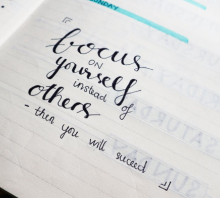 MONDAY
focus
ON
yourself
instead of
others
- then you will succeed
SATURDAY
SUNDAY